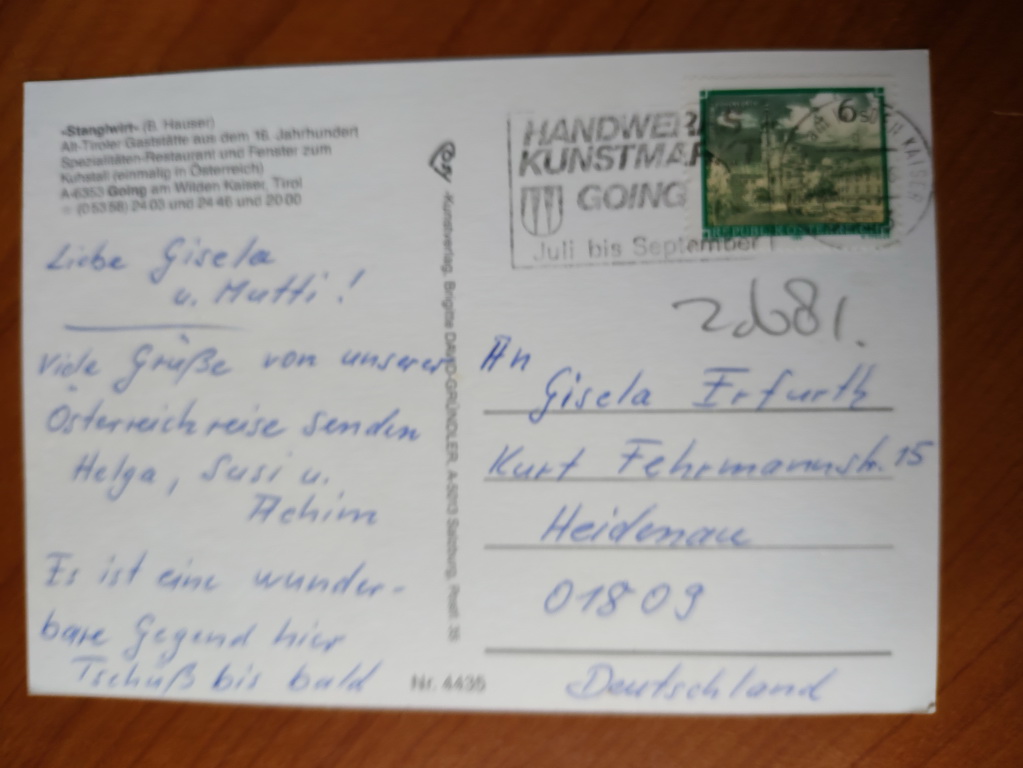 «Stanglwirt» (B. Hauser)
Alt-Tiroler Gaststätte aus dem 16. Jahrhundert
Spezialitäten-Restaurant und Fenster zum
Kuhstall (einmalig in Österreich)
A-6353 Going am Wilden Kaiser, Tirol
(05358) 2403 und 2446 und 2000
Liebe Gisela
u. Mutti!
Viele Grüße von unserer
Österreichreise senden
Helga, Susi u.
Achim
Es ist eine wunder-
bare Gegend hier
Tschüß bis bald
Kunstverlag, Brigitte DAVID-GRÜNDLER, A-5013 Salzburg, Postf. 36
Nr. 4435
HANDWER
KUNSTMAR
GOING
Juli bis September
6
REPUBLIK ÖSTERREICH
KAISER
An
Gisela Erfurth
Kurt Fehrmannstr. 15
Heidenau
01809
Deutschland